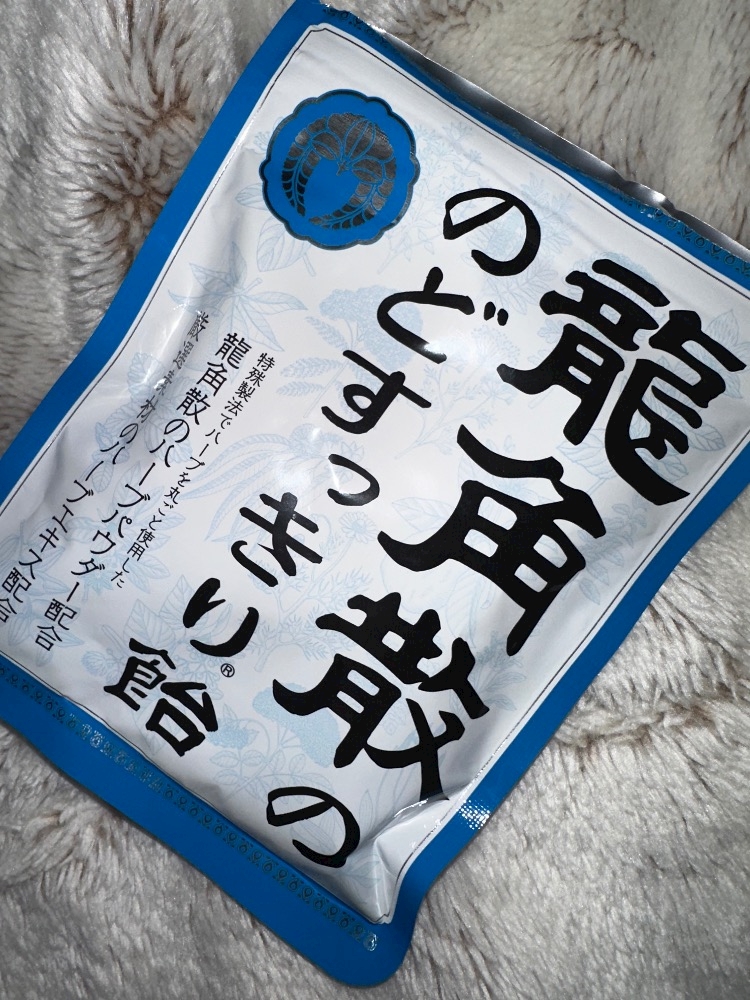 龍角散の
のどすっきり飴®
特殊製法でハーブを丸ごと使用した
龍角散のハーブパウダー配合
厳選素材のハーブエキス配合